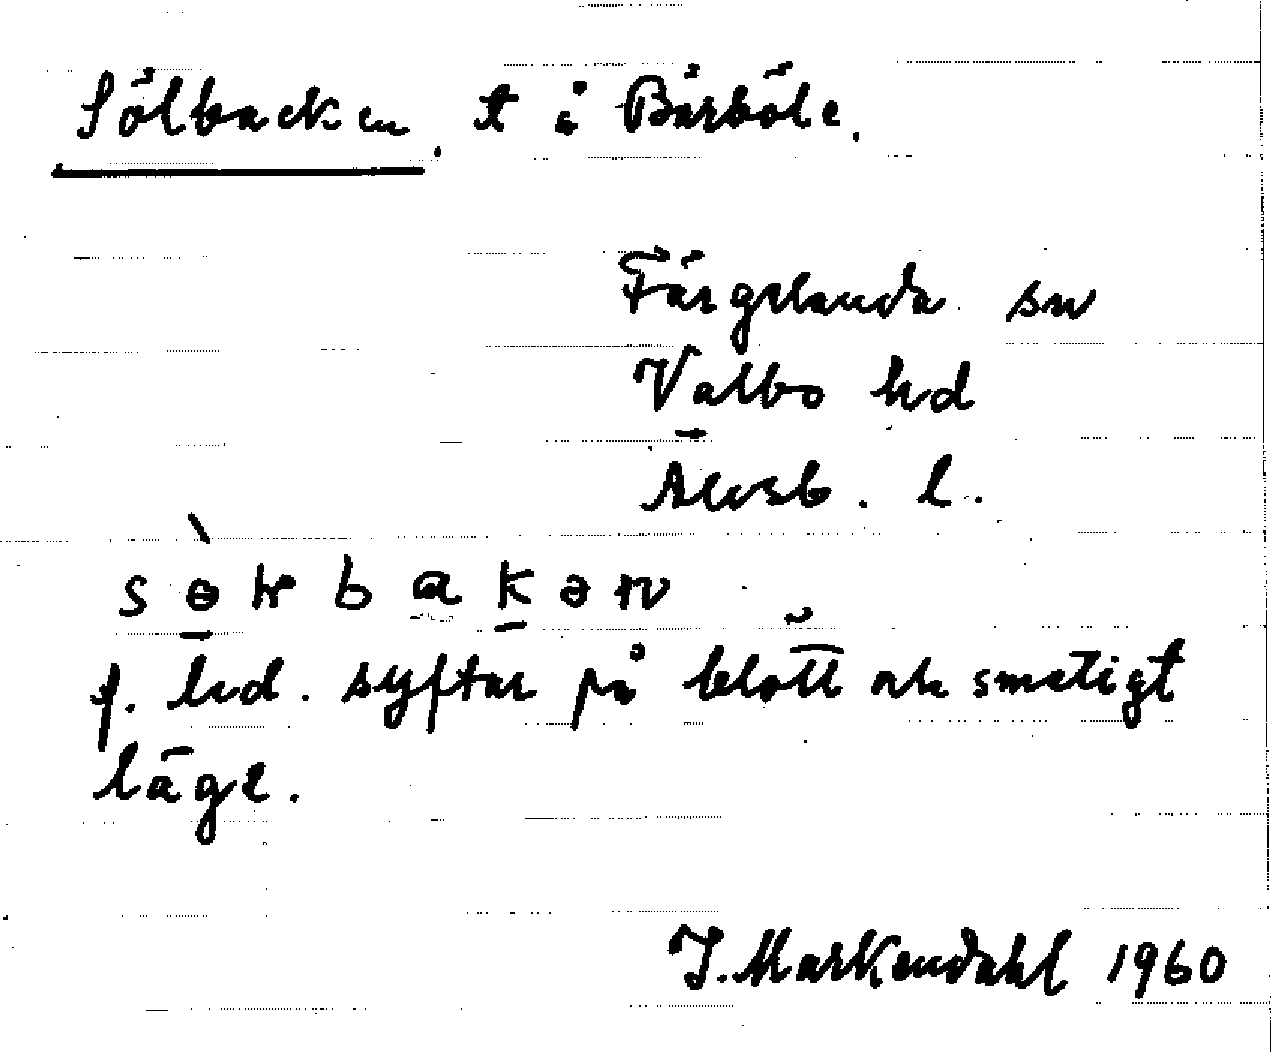 Sölbacken, t å Bärböle.
Färgelanda sn
Valbo hd
Älvsb. l.
f. led. syftar på blött och smetigt
läge.
J. Markendahl 1960